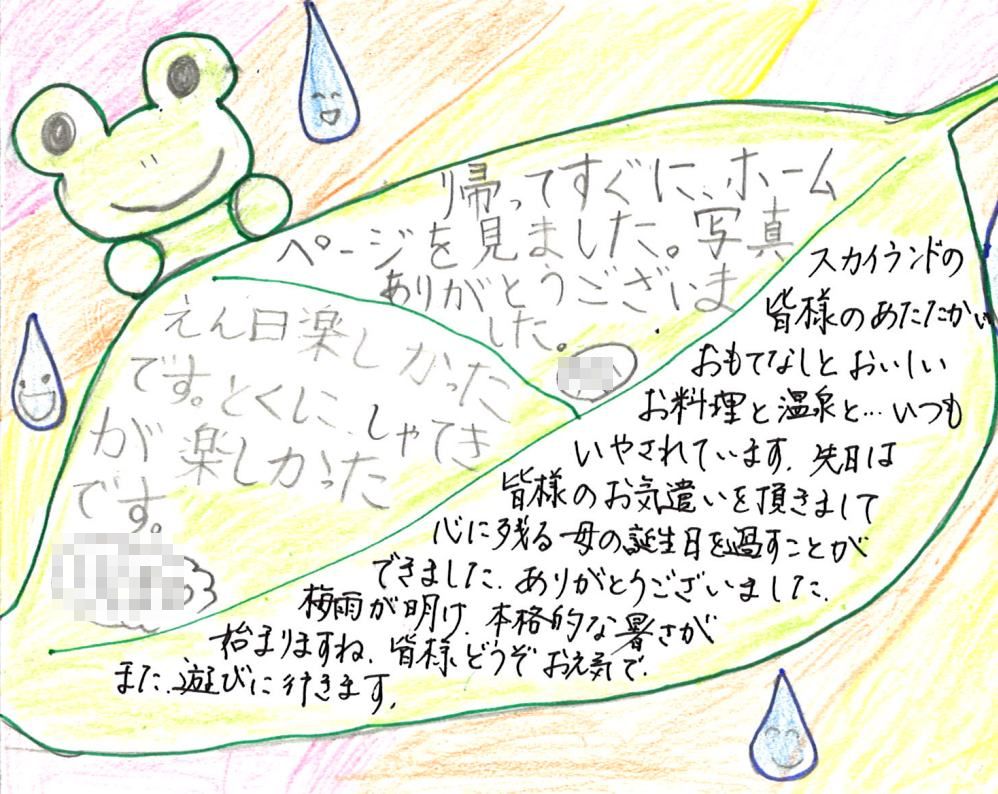 帰ってすぐに、ホーム
ページを見ました。写真
ありがとうございま
した。
えん日楽しかった
です。とくに、しゃてき
が楽しかった
です。
スカイランドの
皆様のあたたかい
おもてなしとおいしい
お料理と温泉と…いつも
いやされています。先日は
皆様のお気遣いを頂きまして
心に残る母の誕生日を過すことが
できました。ありがとうございました。
梅雨が明け、本格的な暑さが
始まりますね、皆様どうぞお元気で。
また、遊びに行きます。